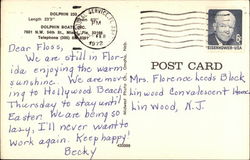 DOLPHIN 233
Length 23'3"
DOLPHIN BOATS, INC.
Miami, Fla.
Telephone (305)
1972
EISENHOWER·USA
Dear Floss,
We are still in Flor-
ida enjoying the warm
sunshine. We are mov-
ing to Hollywood Beach
Thursday to stay until
Easter. We are being so
lazy, I'll never want to
work again. Keep happy!
Becky
POST CARD
Mrs. Florence Leeds Black
Linwood Convalescent Home
Linwood, N.J.